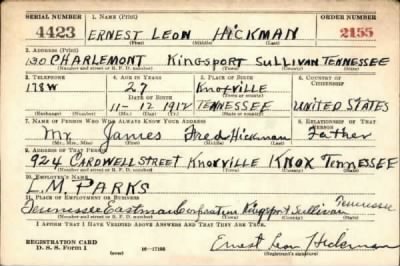 SERIAL NUMBER 1. NAME (Print) ORDER NUMBER
4423 ERNEST LEON HICKMAN 2155
(First) (Middle) (Last)
2. ADDRESS (Print)
130 CHARLEMONT KINGSPORT SULLIVAN TENNESSEE
(Number and street or R. F. D. number) (Town) (County) (State)
3. TELEPHONE 4. AGE IN YEARS 5. PLACE OF BIRTH 6. COUNTRY OF CITIZENSHIP
178W 27 Knoxville
DATE OF BIRTH (Town or county)
11-12 1912 TENNESSEE UNITED STATES
(Exchange) (Number) (Mo.) (Day) (Yr.) (State or country)
7. NAME OF PERSON WHO WILL ALWAYS KNOW YOUR ADDRESS 8. RELATIONSHIP OF THAT PERSON
Mr. James Fred Hickman Father
(Mr., Mrs., Miss) (First) (Middle) (Last)
9. ADDRESS OF THAT PERSON
924 CARDWELL STREET KNOXVILLE KNOX TENNESSEE
(Number and street or R. F. D. number) (Town) (County) (State)
10. EMPLOYER'S NAME
L.M. PARKS
11. PLACE OF EMPLOYMENT OR BUSINESS
Tennessee Eastman Corporation Kingsport Sullivan Tennessee
(Number and street or R. F. D. number) (Town) (County) (State)
I AFFIRM THAT I HAVE VERIFIED ABOVE ANSWERS AND THAT THEY ARE TRUE.
REGISTRATION CARD
D. S. S. Form 1 16—17105 Ernest Leon Hickman
(Registrant's signature)